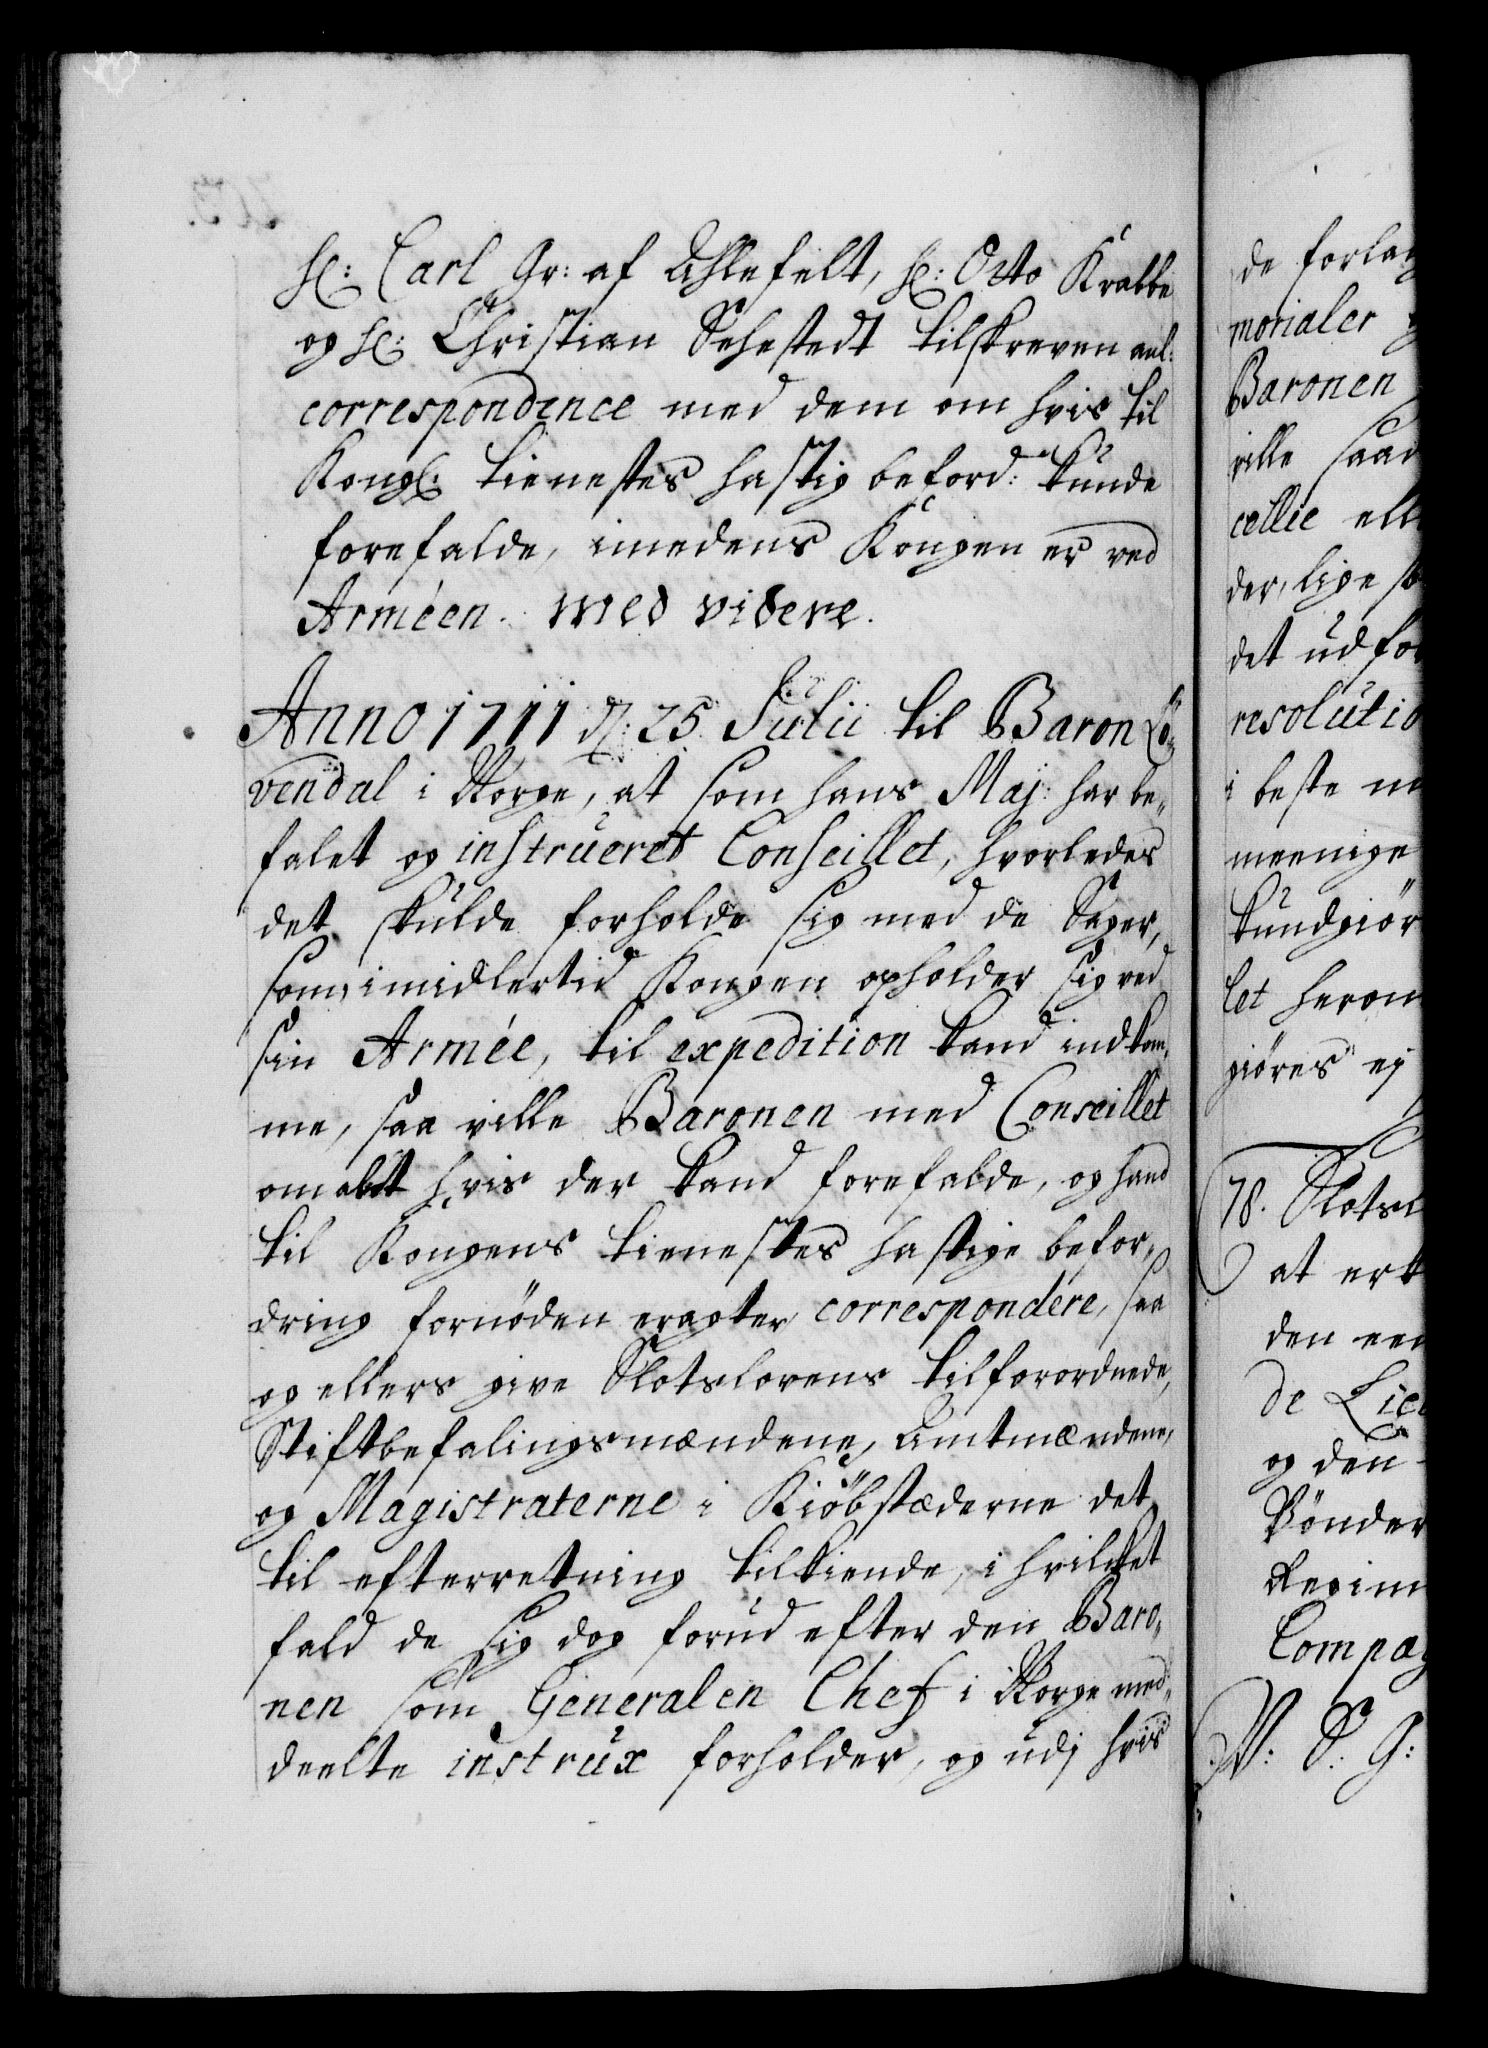 H: Carl Gr: af Ahlefelt, H: Otto Krabbe
og H: Christian Sehestedt tilskreven anl:
correspondence med dem om hvis til
Kongl: tienestes hastig beford: kunde
forefalde, imedens Kongen er ved
Arméen. med videre.
Anno 1711 d: 25 Julii til Baron Lö-
vendal i Norge, at som hans Maj: har be-
falet og instrueret Conseillet, hvorledes
det skulde forholde sig med de Sager,
som, imidlertid Kongen opholder sig ved
sin Armée, til expedition kand indkom-
me, saa ville Baronen med Conseillet
om aldt hvis der kand forefalde, og hand
til Kongens tienestes hastige befor-
dring fornöden eragter, correspondere, saa
og ellers give Slotslovens tilforordnede,
Stiftbefalingsmændene, Amtmændene,
og Magistraterne i Kiöbstæderne det
til efterretning tilkiende, i hvilket
fald de sig dog forud efter den Baro-
nen som Generalen Chef i Norge med-
deelte instrux forholder, og udj hvis
de forlag
morialer
Baronen
ville saad
cellie ell
der, lige s
det udfor
resolutio
i beste m
meenige
kundgiör
let herom
giöres ej
78. Slotsl
at erk
den een
de Lie
og den
Bönder
Regim
Compag
N: S: G: